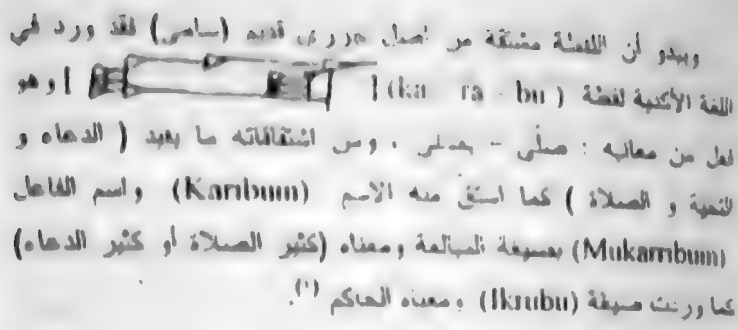 ويبدو أن اللفظة مشتقة من أصل جزري قديم (سامي) فقد ورد في
اللغة الأكدية لفظة (ka - ra - bu) [ ] وهو
فعل من معانيه : صلّى - يصلي ، ومن اشتقاقاته ما يفيد ( الدعاء و
التحية و الصلاة ) كما اشتق منه الاسم (Karibum) واسم الفاعل
(Mukarribum) بصيغة المبالغة ومعناه (كثير الصلاة أو كثير الدعاء)
كما وردت صيغة (Ikrubu) ومعناه الحاكم (١).